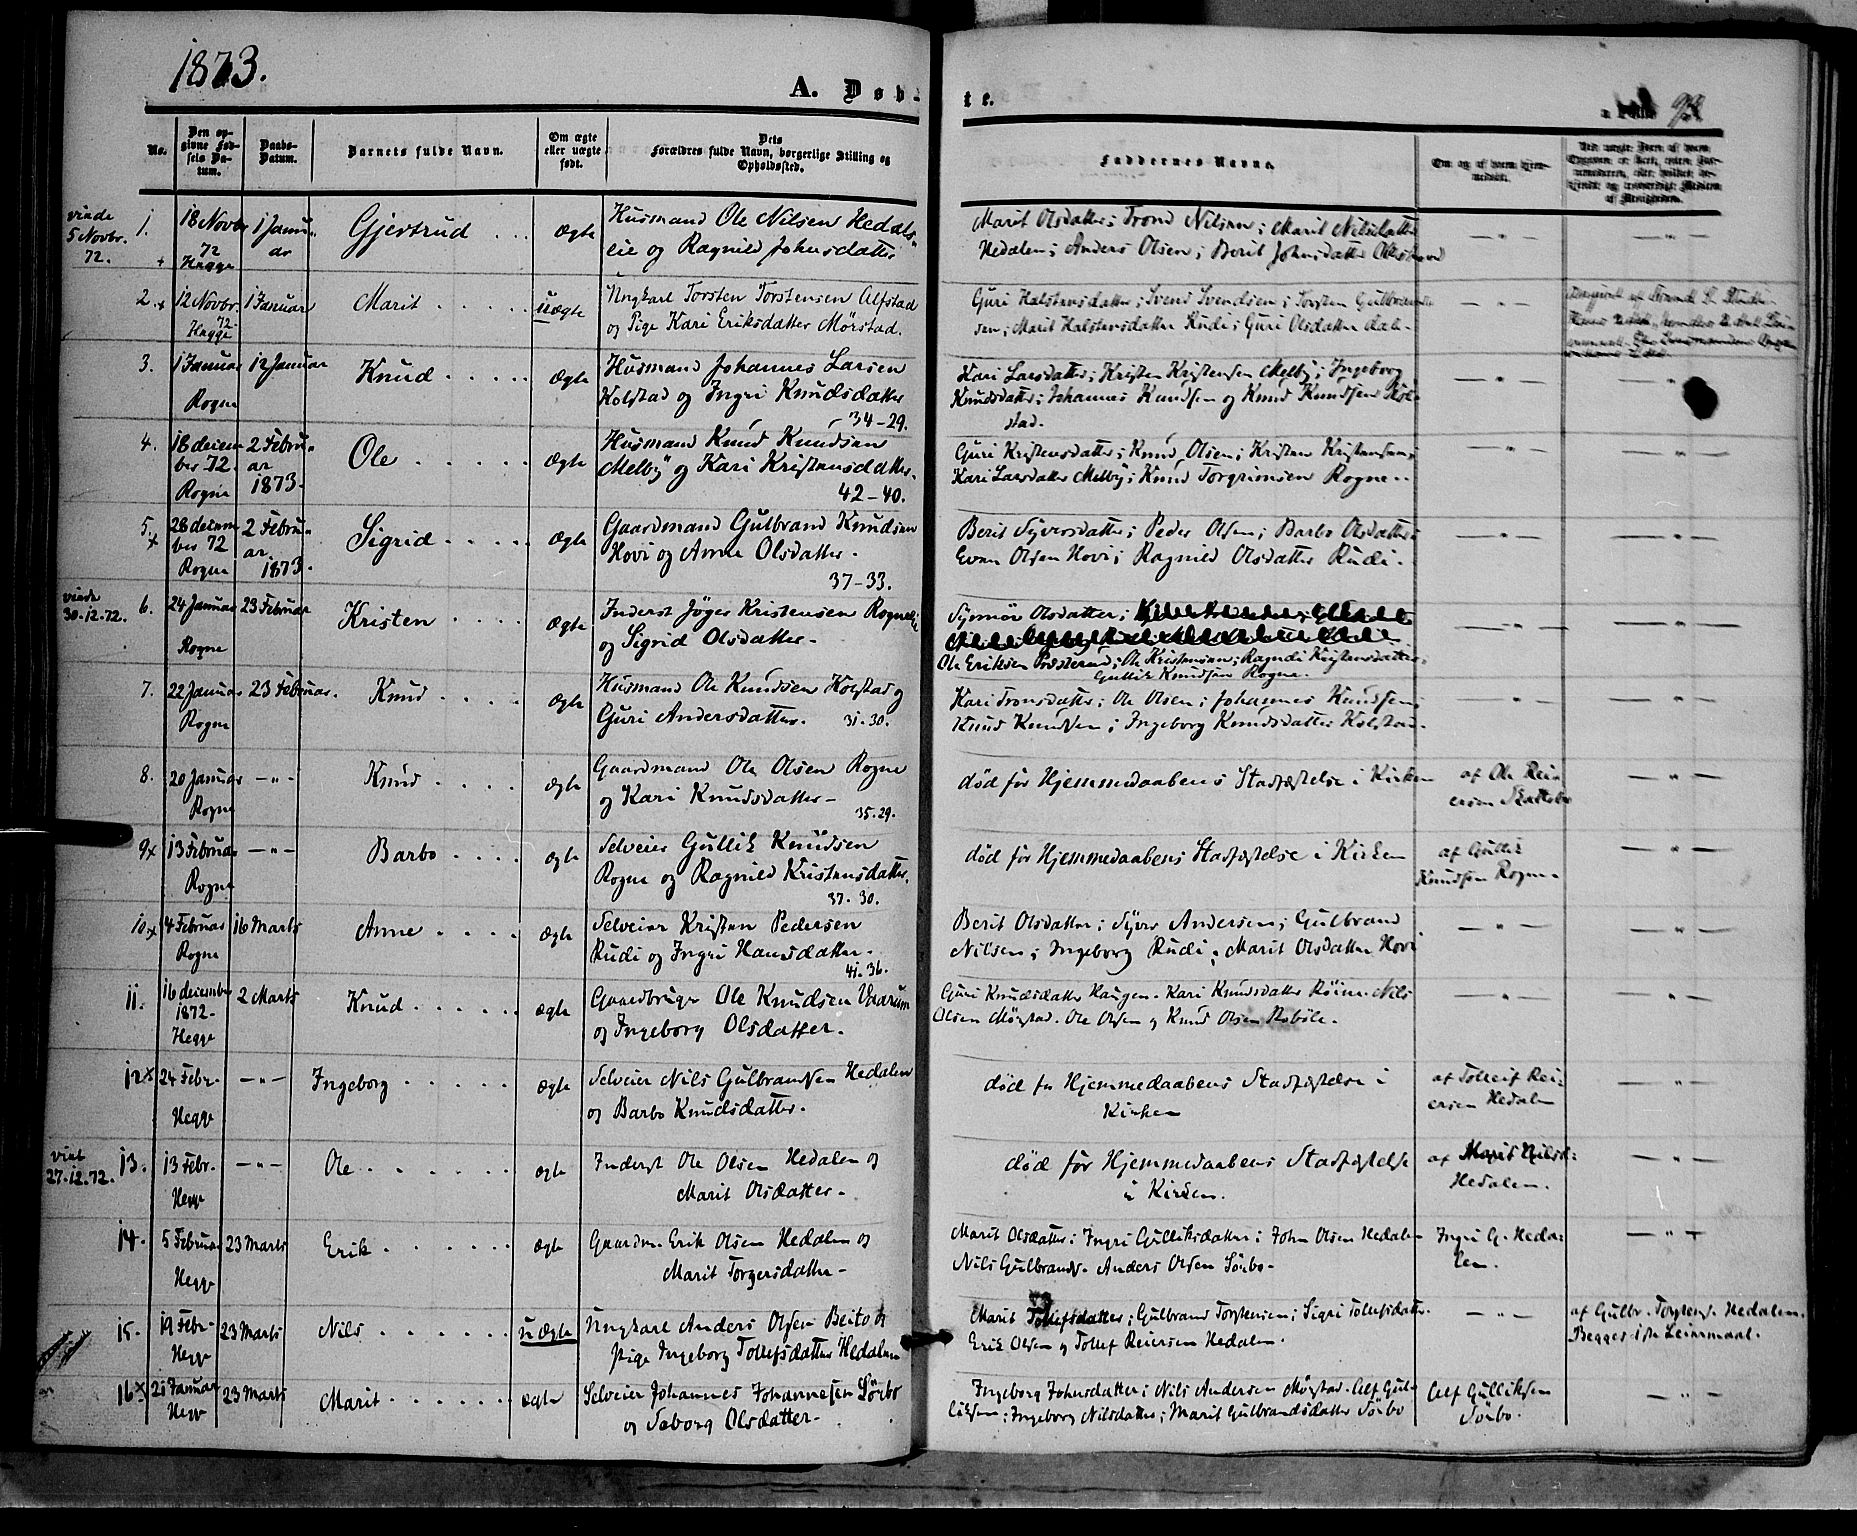 1873.
A. Døb-
te.
No.
Den op-
givne Fød-
sels Da-
tum.
Daabs-
Datum.
Barnets fulde Navn.
Om ægte
eller uægte
født.
Dets
Forældres fulde Navn, borgerlige Stilling og
Opholdssted.
Faddernes Navne.
Om og af hvem hjem-
medøbt.
5 Novbr.
72.
1.
18 Novbr
72
Hegge
1 Janu-
ar
Gjertrud
ægte
Husmand Ole Nilsen Hedals-
eie og Ragnild Johnsdatter
Marit Olsdatter; Trond Nilsen; Marit Nilsdatter
Hedalen; Anders Olsen; Berit Johnsdatter
2.
12 Novbr.
72
Hegge
1 Januar
Marit
uægte
Ungkarl Torsten Torstensen Alfstad
og Pige Kari Eriksdatter Mørstad.
Guri Halstensdatter; Svend Svendsen; Torsten Gulbrand-
sen; Marit Halstensdatter Rudi; Guri Olsdatter
3.
1 Januar
Rogne
12 Januar
Knud
ægte
Husmand Johannes Larsen
Kolstad og Ingri Knudsdatter
34-29.
Kari Larsdatter; Kristen Kristensen Melby; Ingeborg
Knudsdatter; Johannes Knudsen og Knud Knudsen Kol-
stad.
4.
18 decem
ber 72.
Rogne
2 Febru-
ar
1873.
Ole
ægte
Husmand Knud Knudsen
Melby og Kari Kristensdatter.
42-40.
Guri Kristensdatter; Knud Olsen; Kristen Kristensen;
Kari Larsdatter Melby; Knud Torgrimsen Rogne.
5.
x
28 decem
ber 72
Rogne
2 Febru-
ar
1873.
Sigrid
ægte
Gaardmand Gulbrand Knudsen
Hovi og Anne Olsdatter.
37-33.
Berit Syversdatter; Peder Olsen; Barbo Olsdatter;
Even Olsen Hovi; Ragnild Olsdatter Rudi.
30-12-72.
6.
24 Januar
Rogne
23 Februar
Kristen
ægte
Inderst Jøger Kristensen Rogneeie
og Sigrid Olsdatter.
Synnør Olsdatter;
Ole Eriksen Præsterud; Ole Kristensen; Ragndi Kristensdatter;
Gullik Knudsen Rogne.
7.
22 Januar
Rogne
23 Februar.
Knud
ægte
Husmand Ole Knudsen Kolstad og
Guri Andersdatter. 31-30.
Kari Tronsdatter; Ole Olsen; Johannes Knudsen;
Knud Knudsen; Ingeborg Knudsdatter Kolstad.
8.
20 Januar
Rogne
Knud
ægte
Gaardmand Ole Olsen Rogne
og Kari Knudsdatter
35-29.
død før Hjemmedaabens Stadfæstelse i Kirken
af Ole Rei-
ersen
9x
13 Februar
Rogne
Barbo
ægte
Selveier Gullik Knudsen
Rogne og Ragnild Kristensdatter.
37-30.
død før Hjemmedaabens Stadfæstelse i Kirken
af Gullik
Knudsen Rogne.
10x
4 Februar
Rogne
16 Marts
Anne
ægte
Selveier Kristen Pedersen
Rudi og Ingri Hansdatter.
41-36.
Berit Olsdatter; Syver Andersen; Gulbrand
Nilsen; Ingeborg Rudi; Marit Olsdatter Hovi
11.
16 december
1872-
Hegge
2 Marts
Knud
ægte
Gaardbruger Ole Knudsen Vaarum
og Ingeborg Olsdatter.
Guri Knudsdatter Haugen. Kari Knudsdatter Röine. Nils
Olsen Mørstad. Ole Olsen og Knud Olsen Robøle.
12x
24 Febr.
Hegge
Ingeborg
ægte
Selveier Nils Gulbrandsen Hedalen
og Barbo Knudsdatter.
død før Hjemmedaabens Stadfæstelse i
Kirken
af Tolleif Rei-
ersen Hedalen
27-12-72.
13.
13 Febr.
Hegge
Ole
ægte
Inderst Ole Olsen Hedalen og
Marit Olsdatter.
død før Hjemmedaabens Stadfæstelse
i Kirken.
af Marit Nilsd.
Hedalen.
14.
5 Februar
Hegge
23 Marts
Erik
ægte
Gaardm. Erik Olsen Hedalen og
Marit Torgersdatter
Marit Olsdatter; Ingri Gulliksdatter; John Olsen Hedalen
Nils Gulbrands. Anders Olsen Sörbo.
Ingri G. Heda-
len.
15.
19 Febr.
Hegge
23 Marts
Nils
uægte
Ungkarl Anders Olsen Beito og
Pige Ingeborg Tollefsdatter Hedalen
Marit Tollefsdatter; Gulbrand Torstensen; Sigri Tollefsdatter.
Erik Olsen og Tollef Reiersen Hedalen.
af Gulbr. Torstens. Hedalen.
Begges 1ste Leiermaal.
16x
21 Januar
Hegge
23 Marts
Marit
ægte
Selveier Johannes Johannesen Sörbo
og Seborg Olsdatter.
Ingeborg Johnsdatter; Nils Andersen Mørstad. Alf Gul-
liksen; Ingeborg Nilsdatter; Marit Gulbrandsdatter Sörbo
Alf Gulliksen
Sörbo.